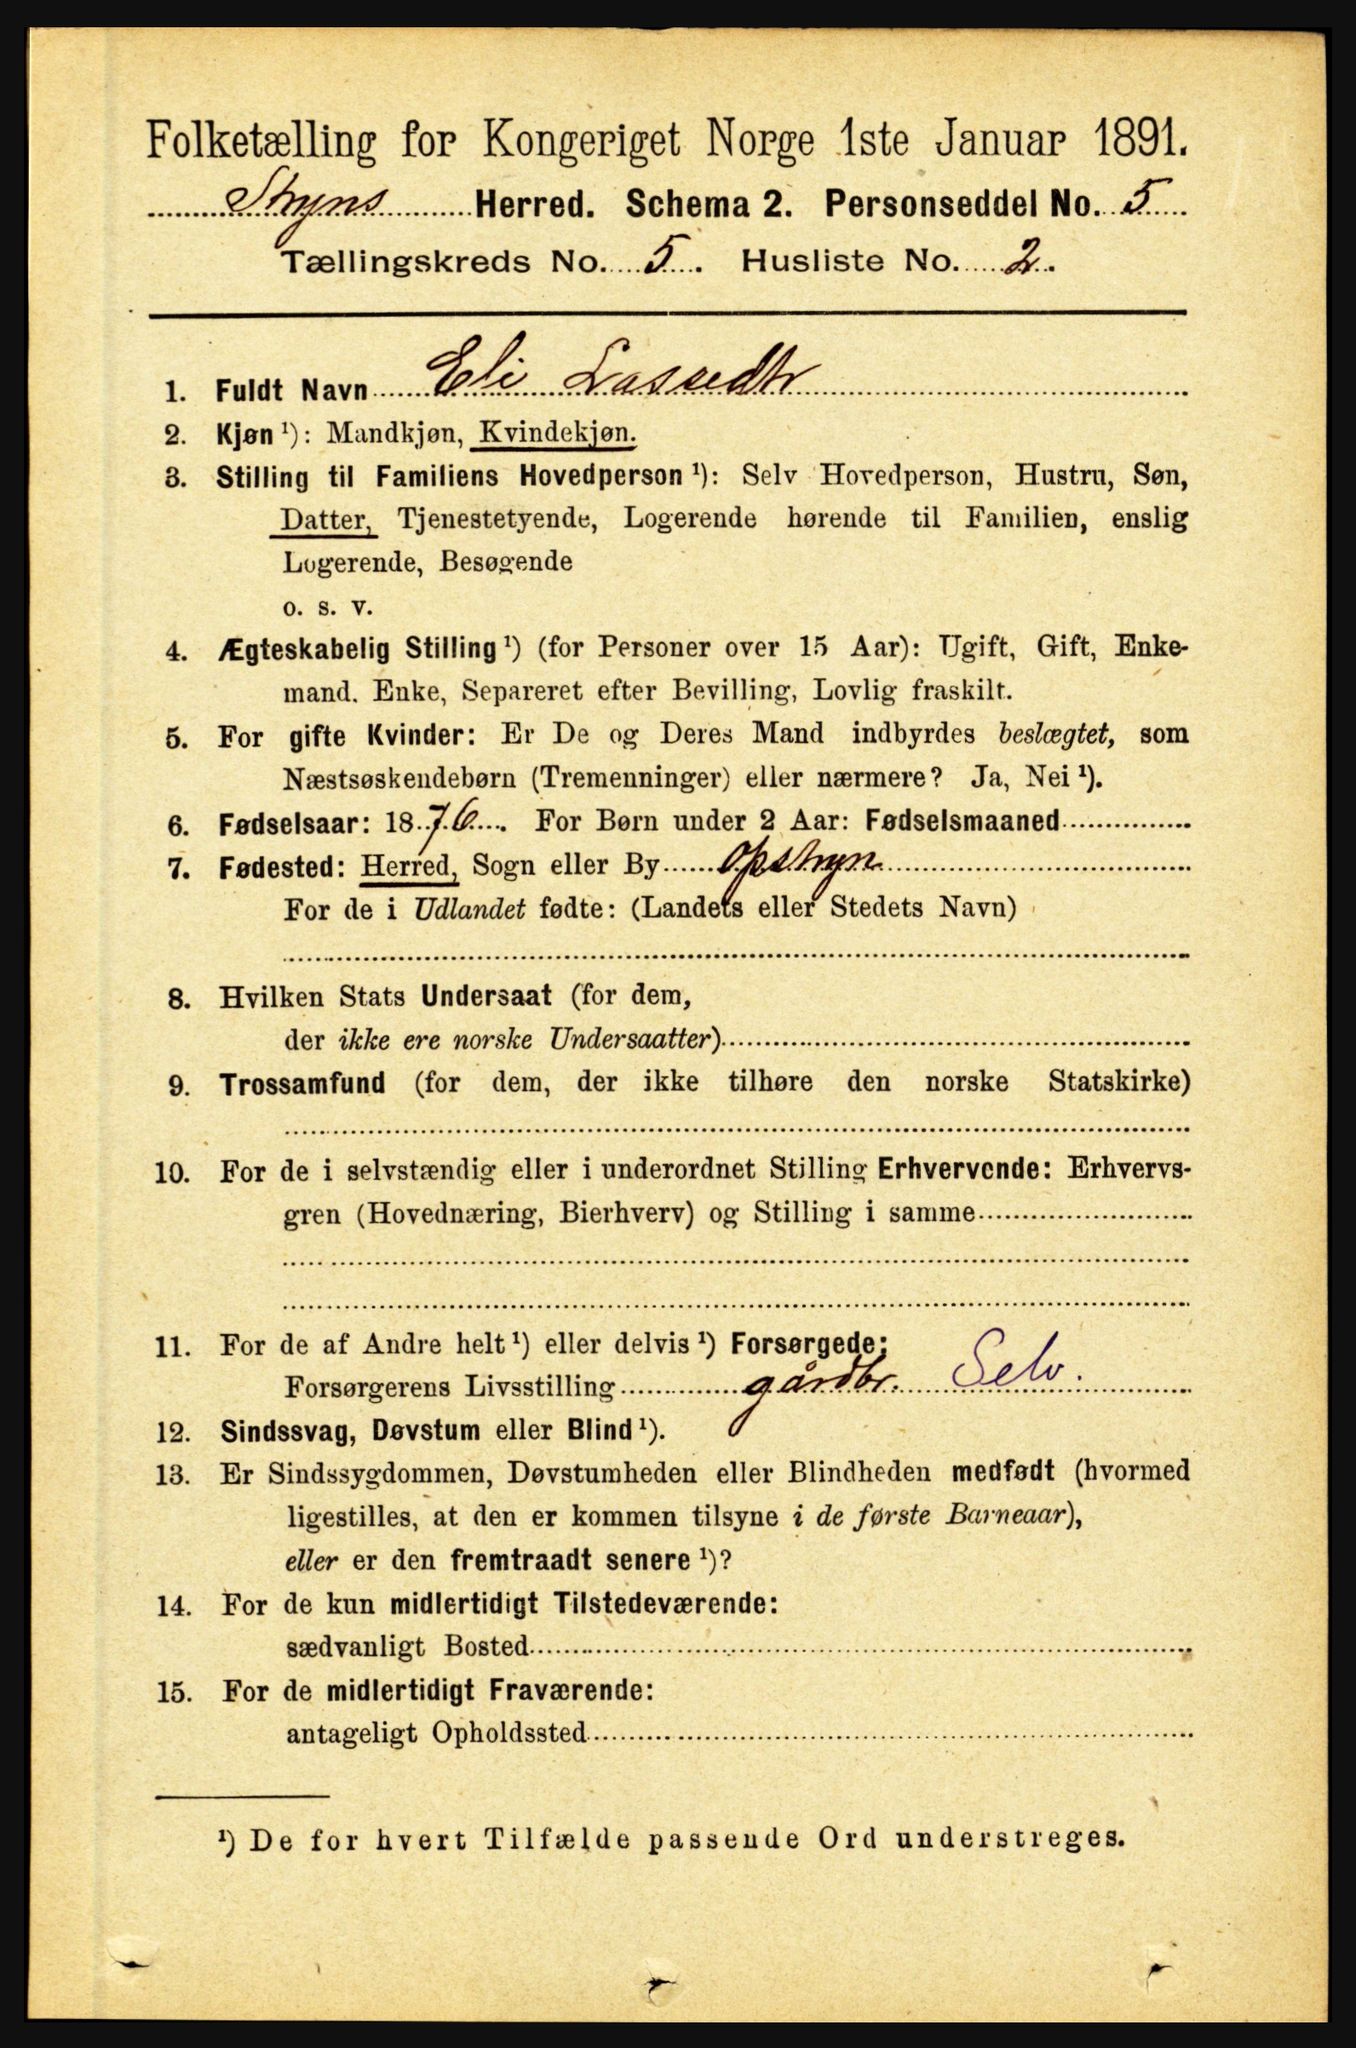 Folketælling for Kongeriget Norge 1ste Januar 1891.
Stryns Herred. Schema 2. Personseddel No. 5
Tællingskreds No. 5. Husliste No. 2.
1. Fuldt Navn Eli Lassedtr
2. Kjøn ¹): Mandkjøn, Kvindekjøn.
3. Stilling til Familiens Hovedperson ¹): Selv Hovedperson, Hustru, Søn,
Datter, Tjenestetyende, Logerende hørende til Familien, enslig
Logerende, Besøgende
o. s. v.
4. Ægteskabelig Stilling ¹) (for Personer over 15 Aar): Ugift, Gift, Enke-
mand. Enke, Separeret efter Bevilling, Lovlig fraskilt.
5. For gifte Kvinder: Er De og Deres Mand indbyrdes beslægtet, som
Næstsøskendebørn (Tremenninger) eller nærmere? Ja, Nei ¹).
6. Fødselsaar: 1876. For Børn under 2 Aar: Fødselsmaaned
7. Fødested: Herred, Sogn eller By Opstryn
For de i Udlandet fødte: (Landets eller Stedets Navn)
8. Hvilken Stats Undersaat (for dem,
der ikke ere norske Undersaatter)
9. Trossamfund (for dem, der ikke tilhøre den norske Statskirke)
10. For de i selvstændig eller i underordnet Stilling Erhvervende: Erhvervs-
gren (Hovednæring, Bierhverv) og Stilling i samme
11. For de af Andre helt ¹) eller delvis ¹) Forsørgede:
Forsørgerens Livsstilling gårdbr. Selv.
12. Sindssvag, Døvstum eller Blind ¹).
13. Er Sindssygdommen, Døvstumheden eller Blindheden medfødt (hvormed
ligestilles, at den er kommen tilsyne i de første Barneaar),
eller er den fremtraadt senere ¹)?
14. For de kun midlertidigt Tilstedeværende:
sædvanligt Bosted
15. For de midlertidigt Fraværende:
antageligt Opholdssted
¹) De for hvert Tilfælde passende Ord understreges.